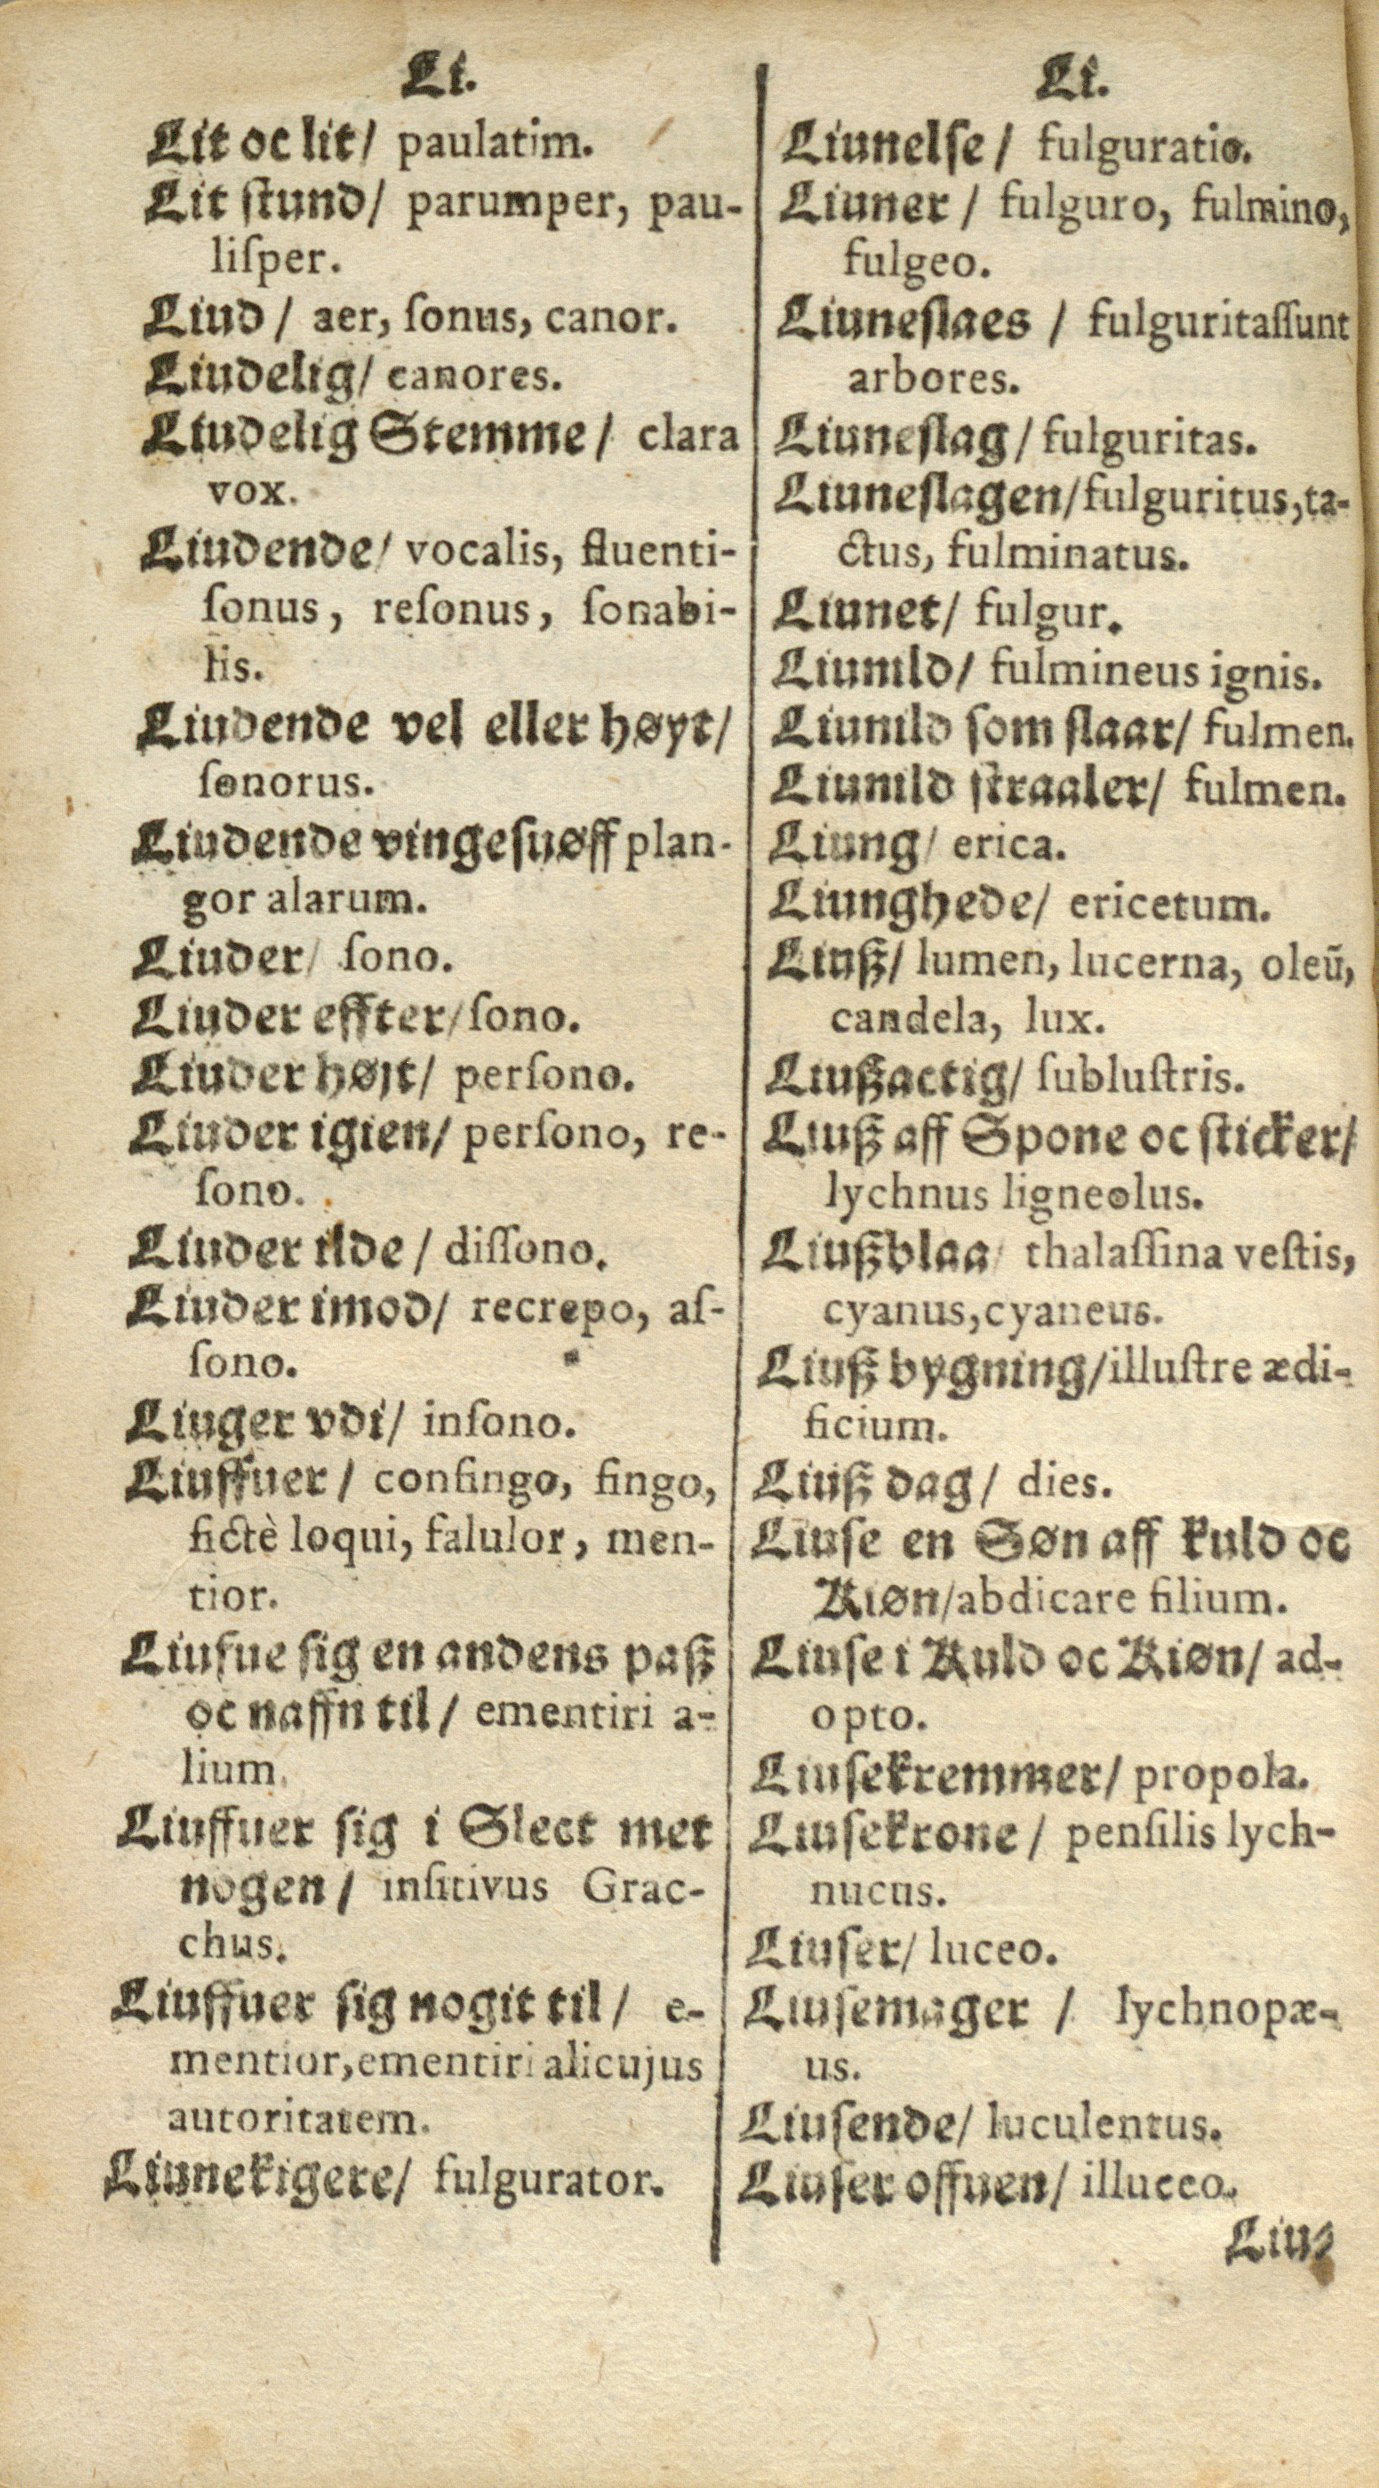 Li.
Lit oc lit/ paulatim.
Lit ſtund/ parumper, pau-
liſper.
Liud/ aer, ſonus, canor.
Liudelig/ canores.
Liudelig Stemme/ clara
vox.
Liudende/ vocalis, fluenti-
ſonus, reſonus, ſonabi-
lis.
Liudende vel eller høyt/
ſonorus.
Liudende vingeſuøff plan-
gor alarum.
Liuder/ ſono.
Liuder effter/ ſono.
Liuder højt/ perſono.
Liuder igien/ perſono, re-
ſono.
Liuder ilde/ diſſono.
Liuder imod/ recrepo, aſ-
ſono.
Liuger vdi/ inſono.
Liuffuer/ confingo, fingo,
fictè loqui, falulor, men-
tior.
Liufue ſig en andens paß
oc naffn til/ ementiri a-
lium.
Liuffuer ſig i Slect met
nogen/ inſitivus Grac-
chus.
Liuffuer ſig nogit til/ e-
mentior, ementiri alicujus
autoritatem.
Liunekigere/ fulgurator.
Li.
Liunelſe/ fulguratio.
Liuner/ fulguro, fulmino,
fulgeo.
Liuneſlaes/ fulguritaſſunt
arbores.
Liuneſlag/ fulguritas.
Liuneſlagen/ fulguritus, ta-
ctus, fulminatus.
Liunet/ fulgur.
Liunild/ fulmineus ignis.
Liunild ſom ſlaar/ fulmen.
Liunild ſtraaler/ fulmen.
Liung/ erica.
Liunghede/ ericetum.
Liuß/ lumen, lucerna, oleū,
candela, lux.
Liußactig/ ſubluſtris.
Liuß aff Spone oc ſticker/
lychnus ligneolus.
Liußblaa/ thalaſſina veſtis,
cyanus, cyaneus.
Liuß bygning/ illuſtre ædi-
ficium.
Liuß dag/ dies.
Liuſe en Søn aff kuld oc
Kiøn/ abdicare filium.
Liuſe i Kuld oc Kiøn/ ad-
opto.
Liuſekremmer/ propola.
Liuſekrone/ penſilis lych-
nucus.
Liuſer/ luceo.
Liuſemager/ lychnopæ-
us.
Liuſende/ luculentus.
Liuſer offuen/ illuceo.
Liu-